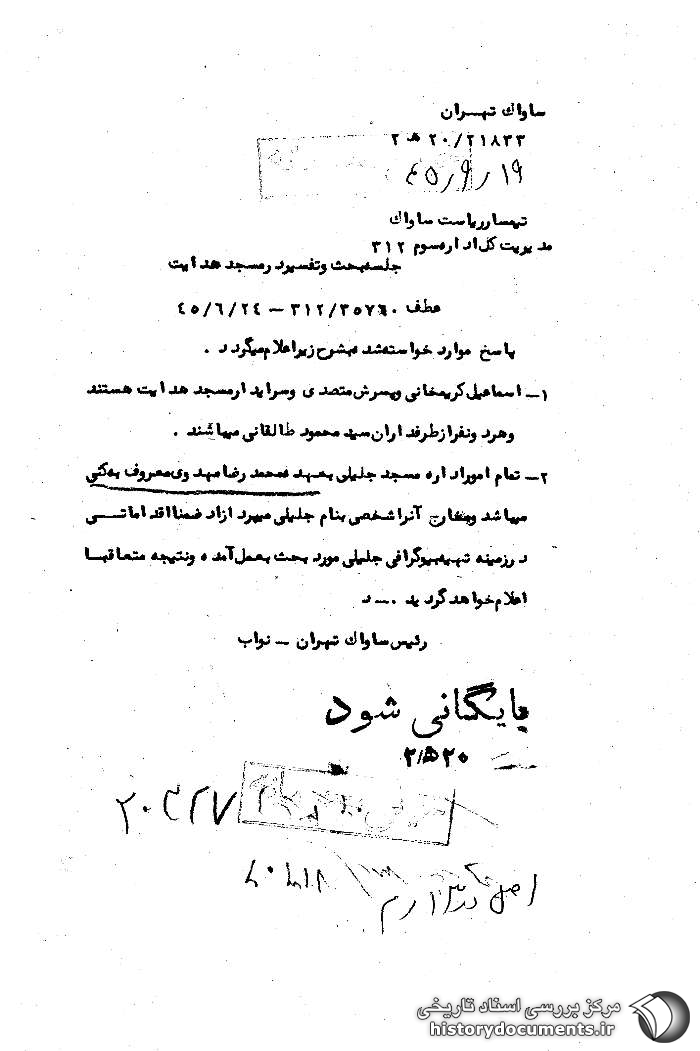 ساواک تهران
۲۰/۲۱۸۳۳ ﻫ ۲
۴۵/۹/۱۹
تیمسار ریاست ساواک
مدیریت کل اداره سوم ۳۱۲
جلسه بحث و تفسیر در مسجد هدایت
عطف ۳۱۲/۳۵۷۶۰ – ۴۵/۶/۲۴
پاسخ موارد خواسته شده بشرح زیر اعلام میگردد .
۱– اسماعیلی کریمخانی و پسرش متصدی و سرایدار مسجد هدایت هستند
و هر دو نفر از طرفداران سید محمود طالقانی میباشند .
۲– تمام امور اداره مسجد جلیلی بعهده محمد رضا مهدوی معروف به کنی
میباشد و مخارج آنرا شخصی بنام جلیلی میپردازاد ضمنا اقداماتی
در زمینه تهیه بیوگرافی جلیلی مورد بحث بعمل آمده و نتیجه متعاقبا
اعلام خواهد گردید . ــ د
رئیس ساواک تهران – نواب
بایگانی شود
۲۰ ﻫ ۲
اصل در
مرکز بررسی اسناد تاریخی
historydocuments.ir